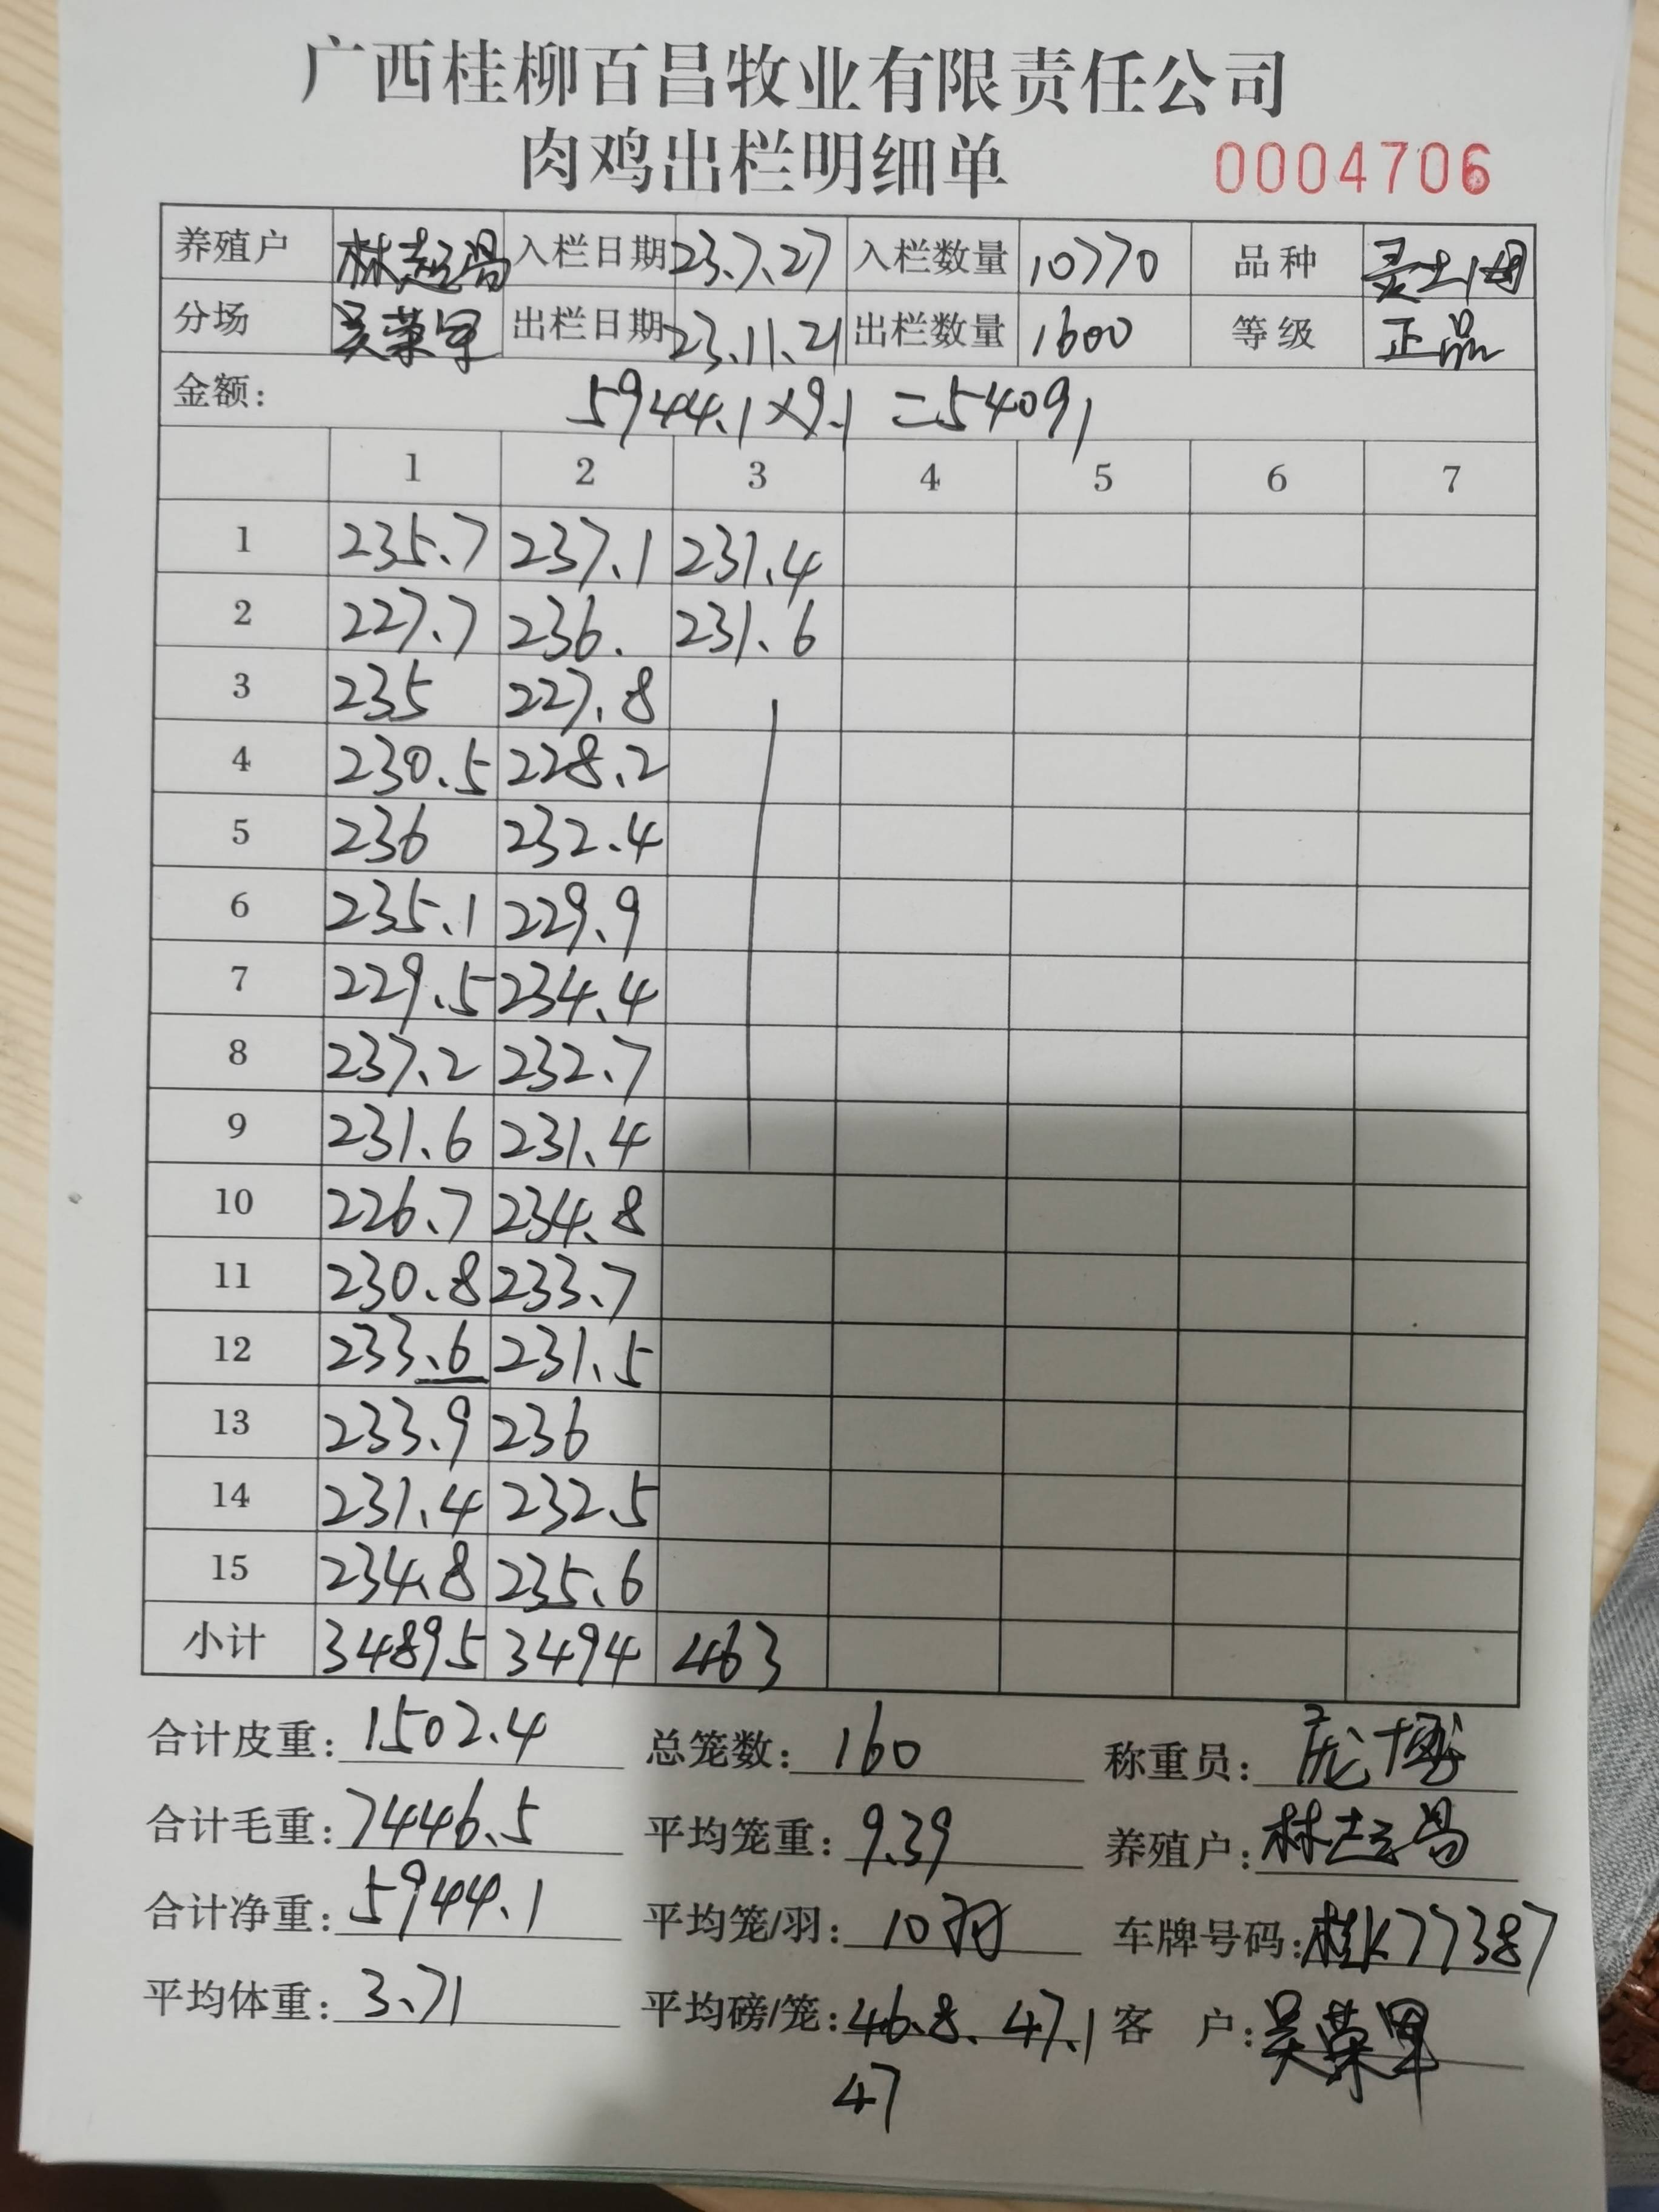 广西桂柳百昌牧业有限责任公司
肉鸡出栏明细单 0004706
养殖户 林超昌 入栏日期 23.7.27 入栏数量 10770 品种 灵土1
分场 吴荣军 出栏日期 23.11.21 出栏数量 1600 等级 正品
金额: 5944.1×9.1=54091
1 2 3 4 5 6 7
1 235.7 237.1 231.4
2 227.7 236. 231.6
3 235 227.8
4 230.5 228.2
5 236 232.4
6 235.1 229.9
7 229.5 234.4
8 237.2 232.7
9 231.6 231.4
10 226.7 234.8
11 230.8 233.7
12 233.6 231.5
13 233.9 236
14 231.4 232.5
15 234.8 235.6
小计 34895 3494 463
合计皮重: 1502.4 总笼数: 160 称重员: 庞博
合计毛重: 7446.5 平均笼重: 9.39 养殖户: 林超昌
合计净重: 5944.1 平均笼/羽: 10羽 车牌号码: 桂K77387
平均体重: 3.71 平均磅/笼: 46.8、47.1 客 户: 吴荣军
47